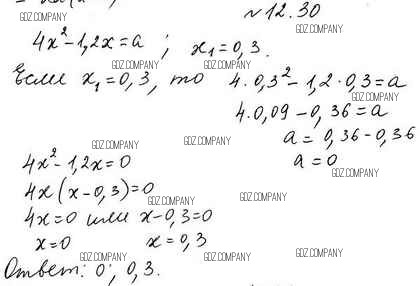 №12.30
4x²-1,2x=a; x₁=0,3.
Если x₁=0,3, то 4·0,3²-1,2·0,3=a
4·0,09-0,36=a
a=0,36-0,36
a=0
4x²-1,2x=0
4x(x-0,3)=0
4x=0 или x-0,3=0
x=0 x=0,3
Ответ: 0; 0,3.
GDZ.COMPANY
GDZ.COMPANY
GDZ.COMPANY
GDZ.COMPANY
GDZ.COMPANY
GDZ.COMPANY
GDZ.COMPANY
GDZ.COMPANY
GDZ.COMPANY
GDZ.COMPANY
GDZ.COMPANY
GDZ.COMPANY
GDZ.COMPANY